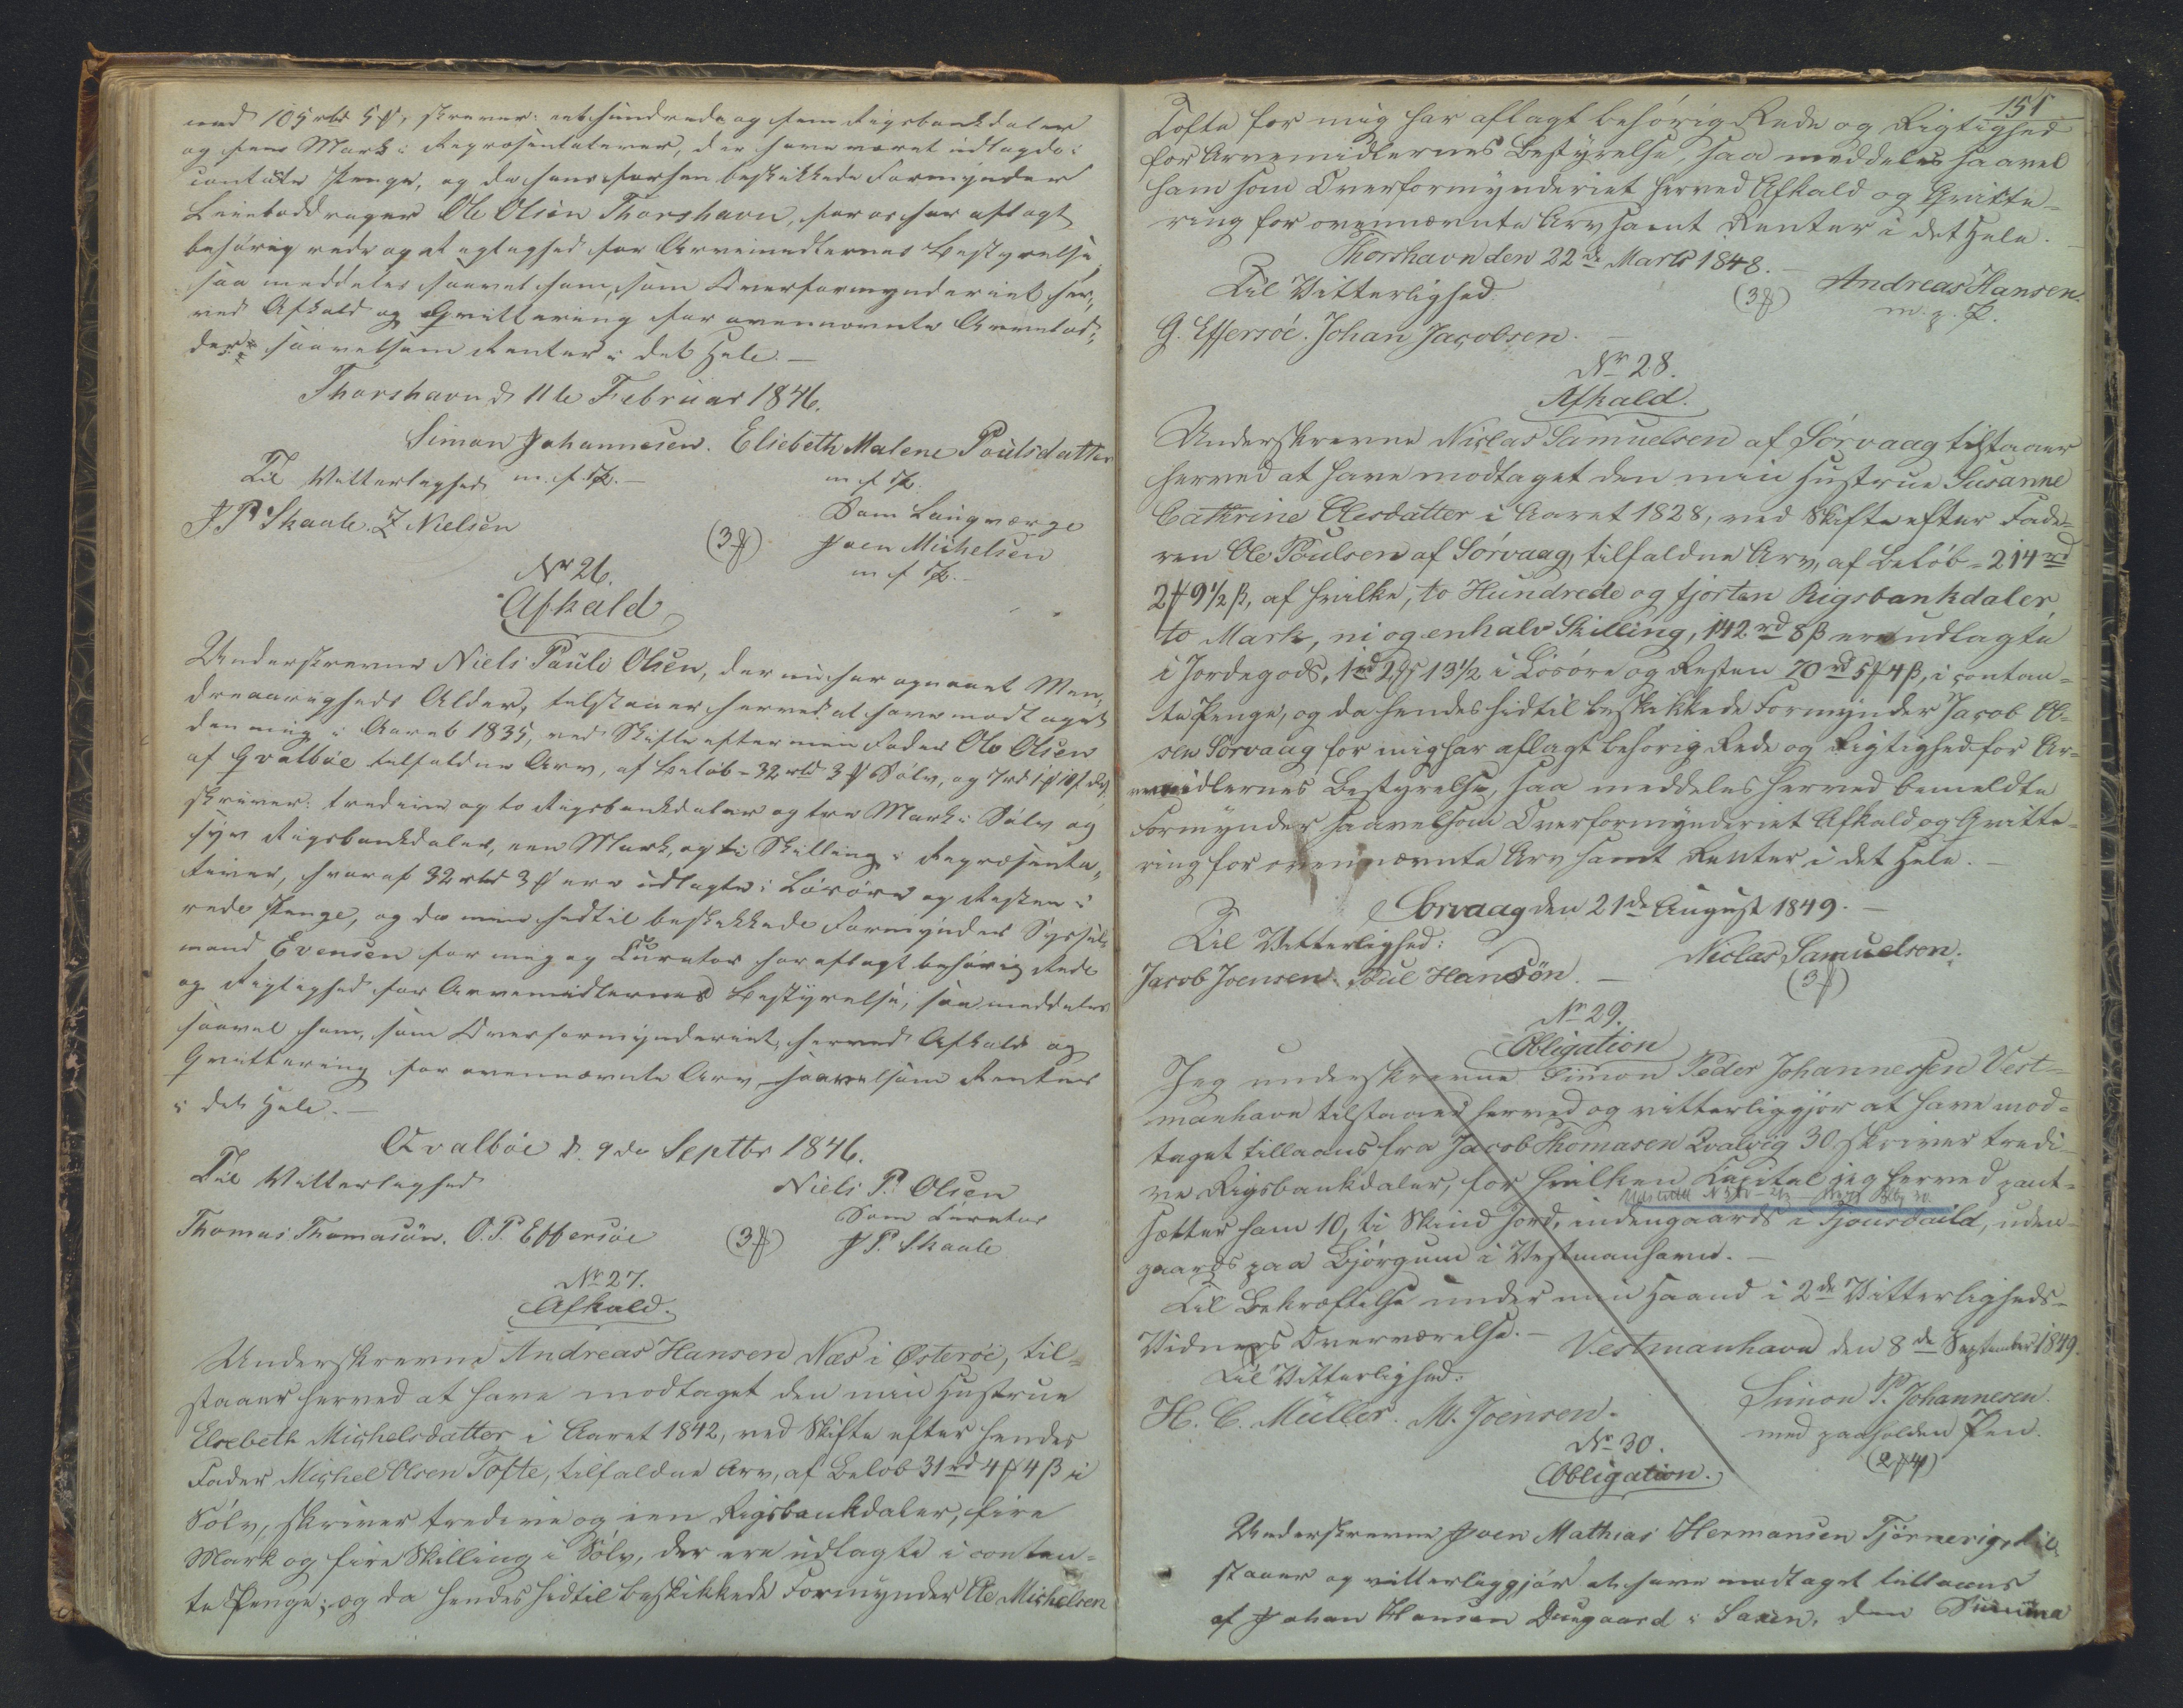 med 105 rbd 5 ₰, skriver: eethundrede og fem Rigsbankdaler
og fem Mark i Repræsentativer, der have været udlagde i
contante Penge, og da hans forhen beskikkede Formynder
Leiebaddrager Ole Olsen Thorshavn, for os har aflagt
behørig rede og rigtighed for Arvemidlernes Bestyrelse,
saa meddeles saavel ham, som Overformynderiet her-
ved Afkald og Qvittering for ovennævnte Arvelod-
der saavelsom Renter i det Hele. —
Thorshavn d. 11te Februar 1846.
Simon Johannesen. Elisebeth Malene Poulsdatter
Til Vitterlighed m. f. P. — m. f. P.
J P Skaale. Z Nielsen Som Laugværge
(3 ₰) Joen Michelsen
m. f. P.
Nr 26.
Afkald
Underskrevne Niels Pauli Olsen, der nu har opnaaet Myn-
dreaarigheds Alder, tilstaaer herved at have modtaget
den mig i Aaret 1835, ved Skifte efter min Fader Ole Olsen
af Qvalbøe tilfaldne Arv, af Beløb = 32 rbd 3 ₰ Sølv, og 7 rd 1 ₰ 10 s
skriver: tredive og to Rigsbankdaler og tre Mark i Sølv og
syv Rigsbankdaler, een Mark, og ti Skilling i Repræsenta-
tiver, hvoraf 32 rbd 3 ₰ ere udlagte i Løsøre og Resten i
rede Penge, og da min hidtil beskikkede Formynder Syssel-
mand Evensen for mig og Curator har aflagt behørig Rede
og Rigtighed for Arvemidlernes Bestyrelse, saa meddeles
saavel ham, som Overformynderiet, herved Afkald og
Qvittering for ovennævnte Arv saavelsom Renter
i det Hele. —
Qvalbøe d. 9de Septbr 1846.
Til Vitterlighed Niels P. Olsen
Som Curator
Thomas Thomasøn. O. P. Effersøe (3 ₰) J P. Skaale
Nr 27.
Afkald.
Underskrevne Andreas Hansen Næs i Østerøe, til-
staaer herved at have modtaget den min Hustrue
Elsebeth Michelsdatter i Aaret 1842, ved Skifte efter hendes
Fader Michel Olsen Tofte, tilfaldne Arv, af Beløb 31 rd 4 ₰ 4 β i
Sølv, skriver tredive og een Rigsbankdaler, fire
Mark og fire Skilling i Sølv, der ere udlagte i contan-
te Penge; og da hendes hidtil beskikkede Formynder Ole Michelsen
151
Tofte for mig har aflagt behørig Rede og Rigtighed
for Arvemidlernes Bestyrelse, saa meddeles saavel
ham som Overformynderiet herved Afkald og Qvitte-
ring for ovennævnte Arv samt Renter i det Hele. —
Thorshavn den 22de Marts 1848. —
Til Vitterlighed: (3 ₰) Andreas Hansen.
m. f. P.
G. Effersøe. Johan Jacobsen. —
Nr 28.
Afkald.
Underskrevne Niclas Samuelsen af Sørvaag tilstaaer
herved at have modtaget den min Hustrue Susanne
Cathrine Olesdatter i Aaret 1828, ved Skifte efter Fade-
ren Ole Poulsen af Sørvaag, tilfaldne Arv, af Beløb = 214 rd
2 ₰ 9 1/2 β, af hvilke, to Hundrede og fjorten Rigsbankdaler,
to Mark, ni og enhalv Skilling, 142 rd 8 β ere udlagte
i Jordegods, 1 rd 2 ₰ 13 1/2 i Løsøre og Resten 70 rd 5 ₰ 4 β, i contan-
te Penge, og da hendes hidtil beskikkede Formynder Jacob Ol-
sen Sørvaag for mig har aflagt behørig Rede og Rigtighed for Ar-
vemidlernes Bestyrelse, saa meddeles herved bemeldte
Formynder saavelsom Overformynderiet Afkald og Qvitte-
ring for ovennævnte Arv samt Renter i det Hele. —
Sørvaag den 21de August 1849. —
Til Vitterlighed: Niclas Samuelsen.
Jacob Joensen. Poul Hansøn. — (3 ₰)
Nr 29.
Obligation
Jeg underskrevne Simon Peder Johannessen Vest-
manhavn tilstaaer herved og vitterliggjør at have mod-
taget tillaans fra Jacob Thomasen Qvalvig 30 skriver tredi-
ve Rigsbankdaler, for hvilken Capital jeg herved pant-
sætter ham 10, ti Skind Jord, indengaards i Fjonsdaild, uden-
gaards paa Bjørgum i Vestmanhavn. —
Til Bekræftelse under min Haand i 2de Vitterligheds-
Vidners Overværelse. — Vestmanhavn den 8de September 1849.
Til Vitterlighed:
H. C. Müller. M. Joensen. Simon P. Johannesen.
med paaholden Pen.
Nr 30. (2 ₰ 4)
Obligation.
Underskrevne Joen Mathias Hermansen Tjørnevig, til-
staaer og vitterliggjør at have modtaget tillaans
af Johan Hansen Duugaard i Saxen, den Summa